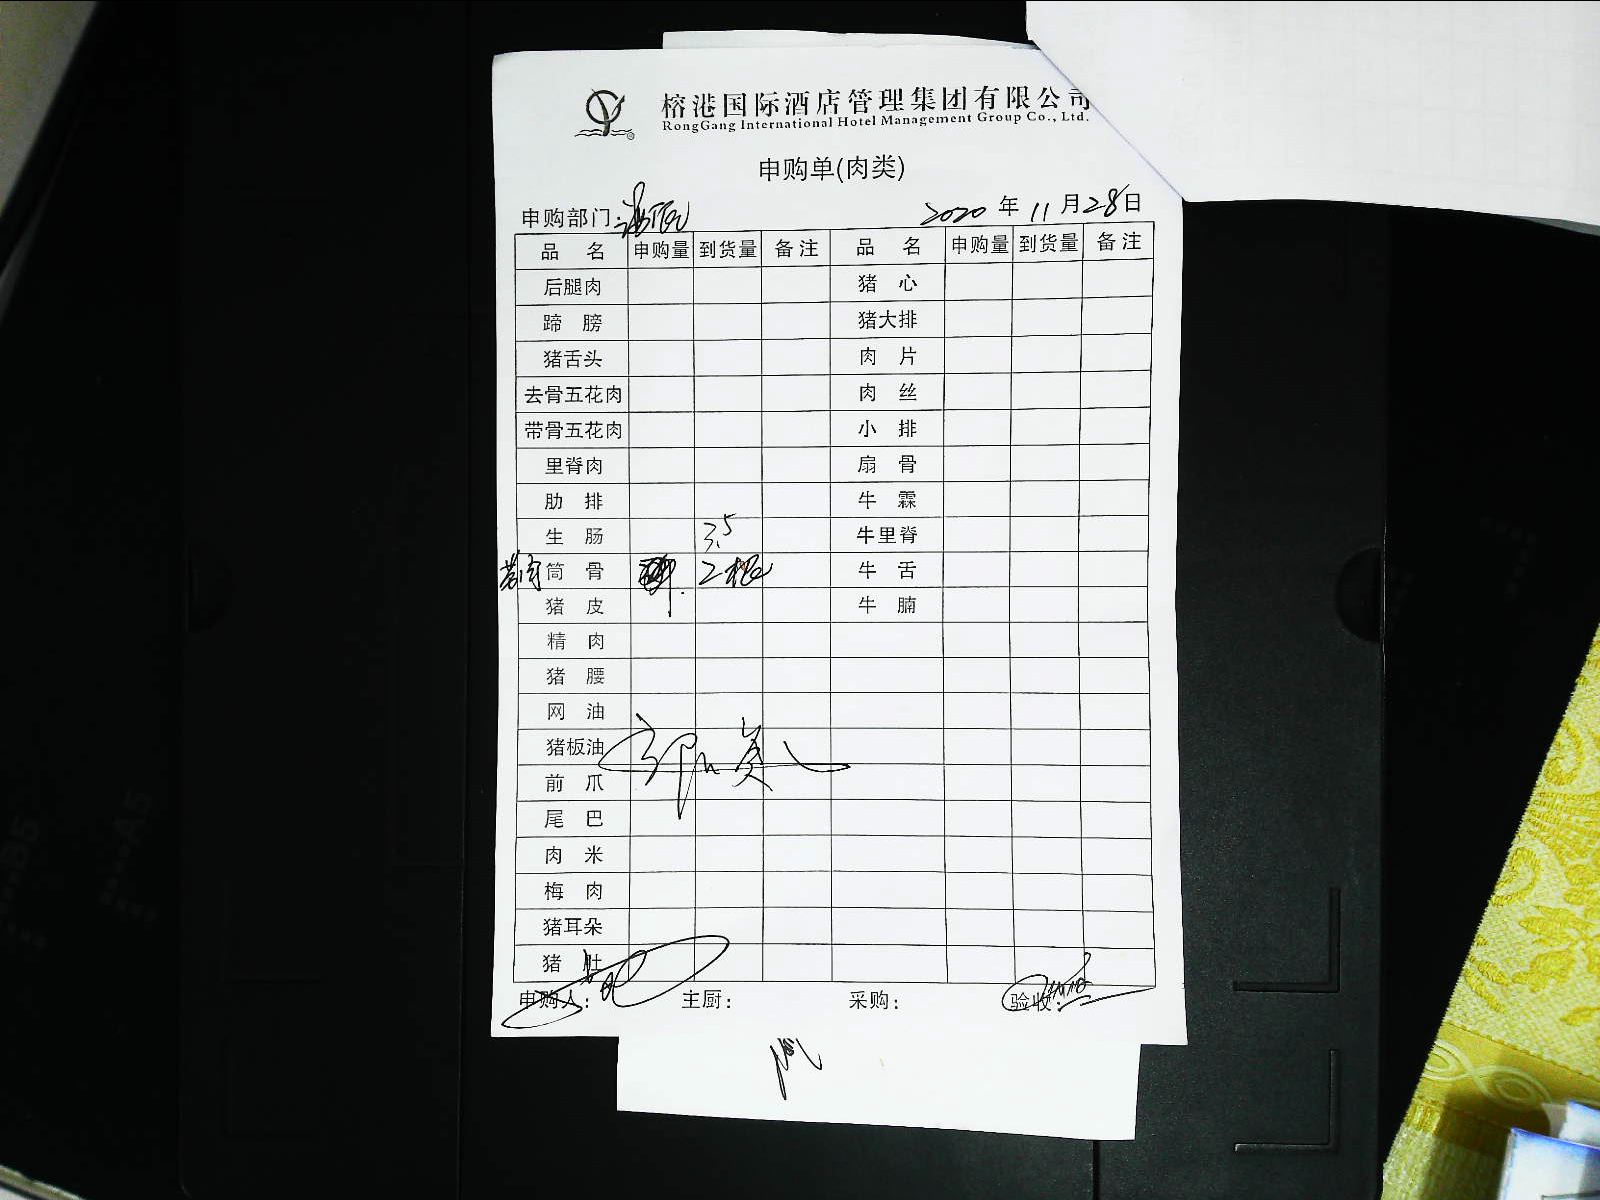 榕港国际酒店管理集团有限公司
RongGang International Hotel Management Group Co., Ltd.
申购单(肉类)
申购部门: 2020 年 11 月 28 日
品 名 申购量 到货量 备注 品 名 申购量 到货量 备注
后腿肉 猪 心
蹄 膀 猪大排
猪舌头 肉 片
去骨五花肉 肉 丝
带骨五花肉 小 排
里脊肉 扇 骨
肋 排 牛 霖
生 肠 3.5 牛里脊
筒 骨 2根 牛 舌
猪 皮 牛 腩
精 肉
猪 腰
网 油
猪板油
前 爪
尾 巴
肉 米
梅 肉
猪耳朵
猪 肚
申购人: 主厨: 采购: 验收: